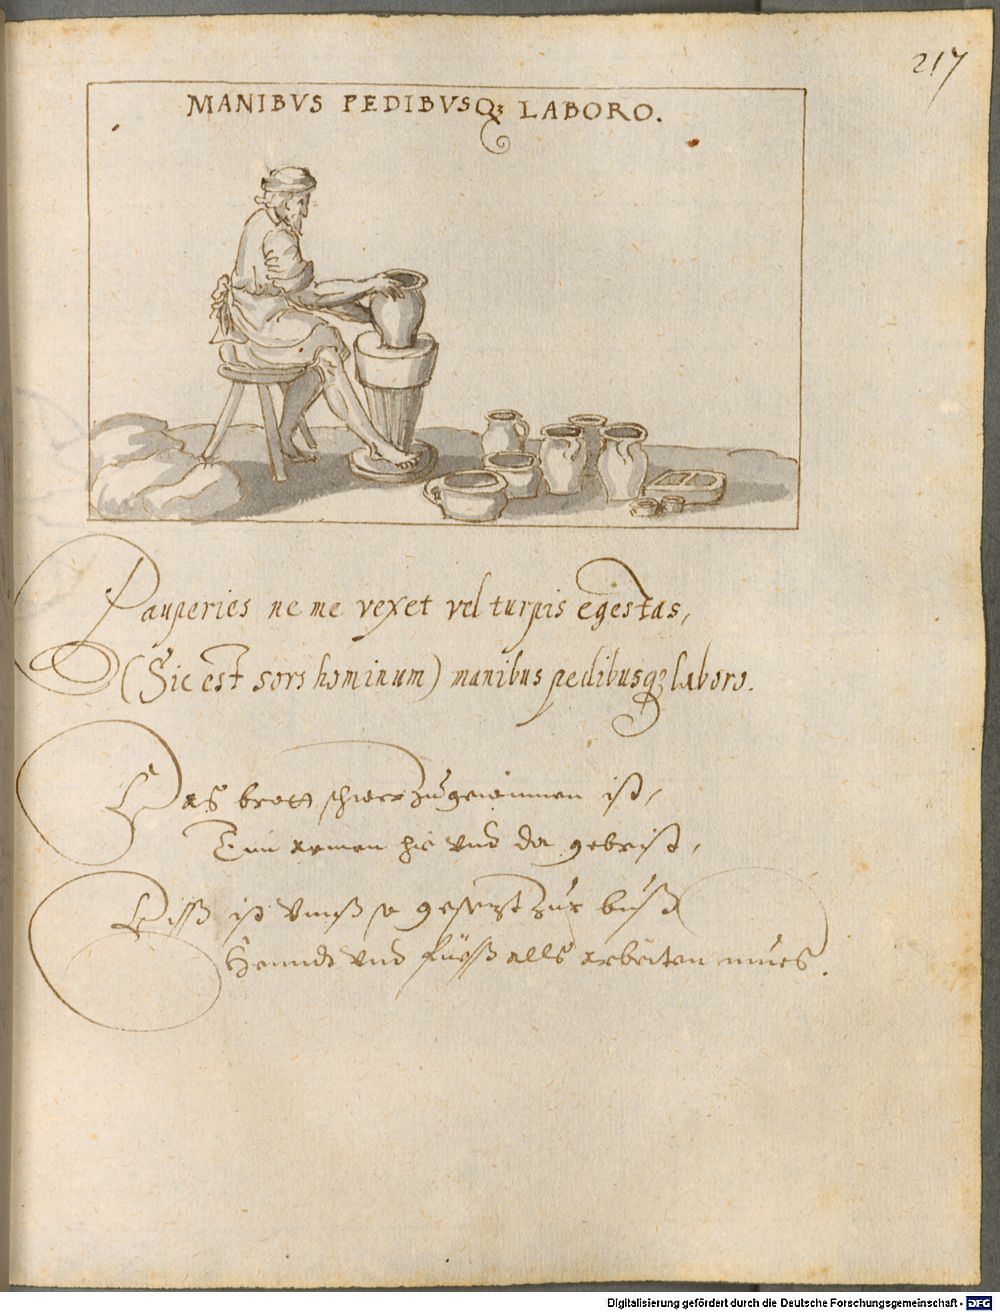 217
MANIBVS PEDIBVSQ; LABORO.
Pauperies ne me vexet vel turpis egestas,
(Sic est sors hominum) manibus pedibusq; laboro.
Das brott schwer zugewinnen ist,
Eim armen hie vnd da gebrist,
Diß ist vnnß so gesetzt zur buß
Henndt vnd füeß alls arbeiten mues.
Digitalisierung gefördert durch die Deutsche Forschungsgemeinschaft - DFG